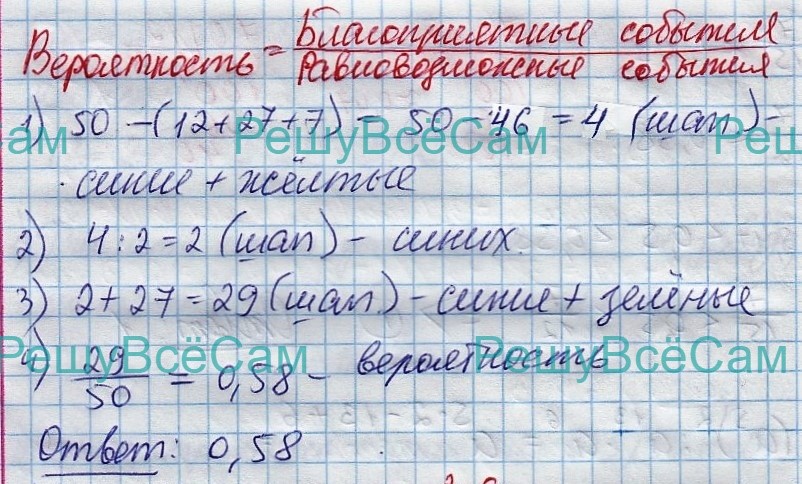 Вероятность = Благоприятные события
Равновозможные события
1) 50 - (12+27+7) = 50 - 46 = 4 (шап) -
РешуВсёСам
синие + жёлтые
2) 4 : 2 = 2 (шап) - синих.
3) 2 + 27 = 29 (шап.) - синие + зелёные
РешуВсёСам РешуВсёСам
4) 29/50 = 0,58 - вероятность
Ответ: 0,58